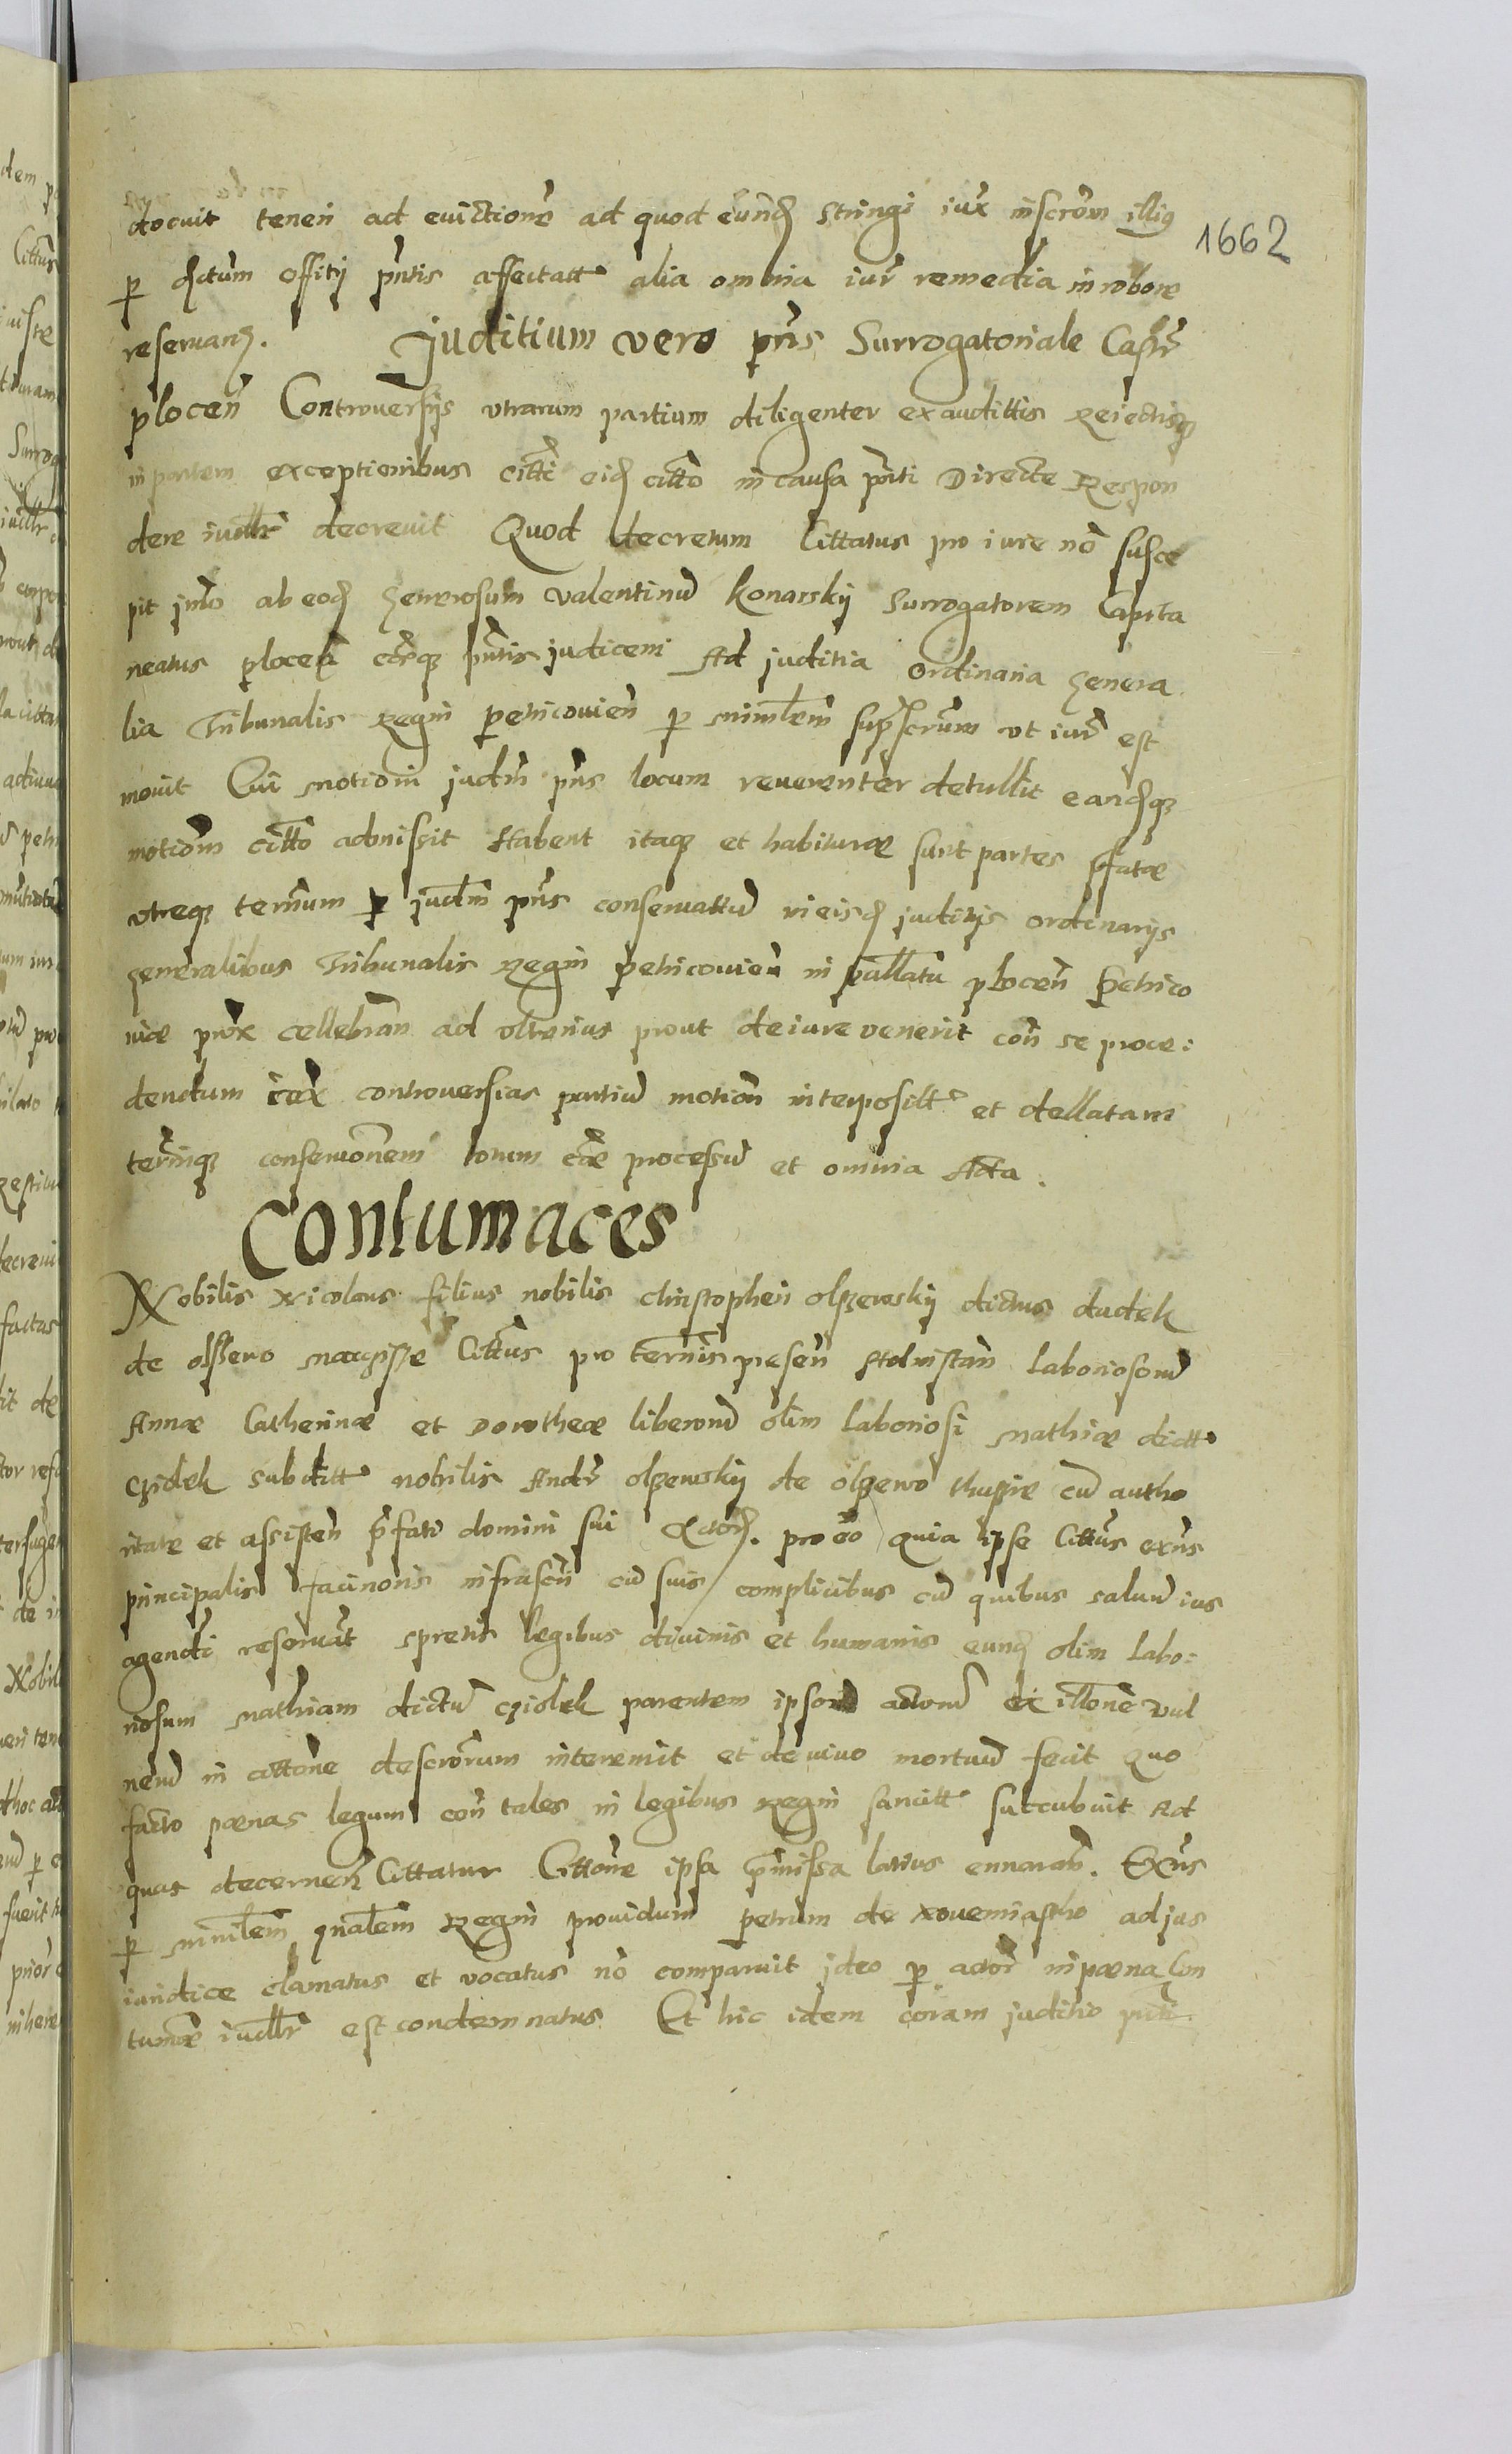 1662
docuit teneri ad evictione ad quod eund stringi iux inscrom illiq
p dctum offitij pntis affectatt alia omnia iur remedia in robore
reseruan. Juditium vero pns Surrogatoriale Castr
plocen Controuersijs vtrarum partium diligenter exauditis Reiectisq
in partem exceptionibus citti eid citto in causa pnti Directe Respon
dere iudltr decreuit Quod decretum Cittatus pro iure no susce
pit jmo ab eod generosum Valentinu Konarskij Surrogatorem Capita
neatus plocen pntis judicem Ad juditia Ordinaria genera
lia Tribunalis Regni petricouien p minlem suprscrum vt iur est
mouit Cui motioni judm pns locum reuerenter detullit eandq
motiom citto admissit Habent itaq et habituræ sunt partes pfatæ
vtreq termum p judm pns conseruattu in eisd juditijs ordinarijs
generalibus Tribunalis Regni petricouien in pallatu plocen Petrico
uiæ prox cellebran ad vlterius prout de iure venerit con se proce:
dendum iux controuersias partiu motiom interposilt et dellatam
termiq conseruonem totum processu et omnia Acta.
Contumaces
Nobilis Nicolaus filius nobilis Christopheri olszewskij dictus dudek
de olszewo Cittus pro ternis presen Ad instan Laboriosoru
Annæ Catherinæ et Dorotheæ liberoru olim Laboriosi Mathiæ dictt
czidek subditt nobilis Andr olszewskij de olszewo cu autho
ritate et assisten pfati domini sui Actor. pro eo quia ipse Cittus exns
principalis facinoris infrascri cu suis complicibus cu quibus saluu ius
agendi reseruat spretis legibus diuinis et humanis eund olim Labo:
riosum Mathiam dictu czidek parentem ipsoru actoru ex illone vul
neru in cittone descrorum interemit et de viuo mortuu fecit Quo
facto pænas legum con tales in legibus Regni sancitt succubuit Ad
quas decernen Cittatur Cittone ipsa pmissa latius ennarab. Exns
p minlem gnalem Regni prouidum petrum de Nouemiastho ad jus
iuridice clamatus et vocatus no comparuit jdeo p actor in pæna Con
tumæ iudltr est condemnatus Et hic idem coram juditio pnti